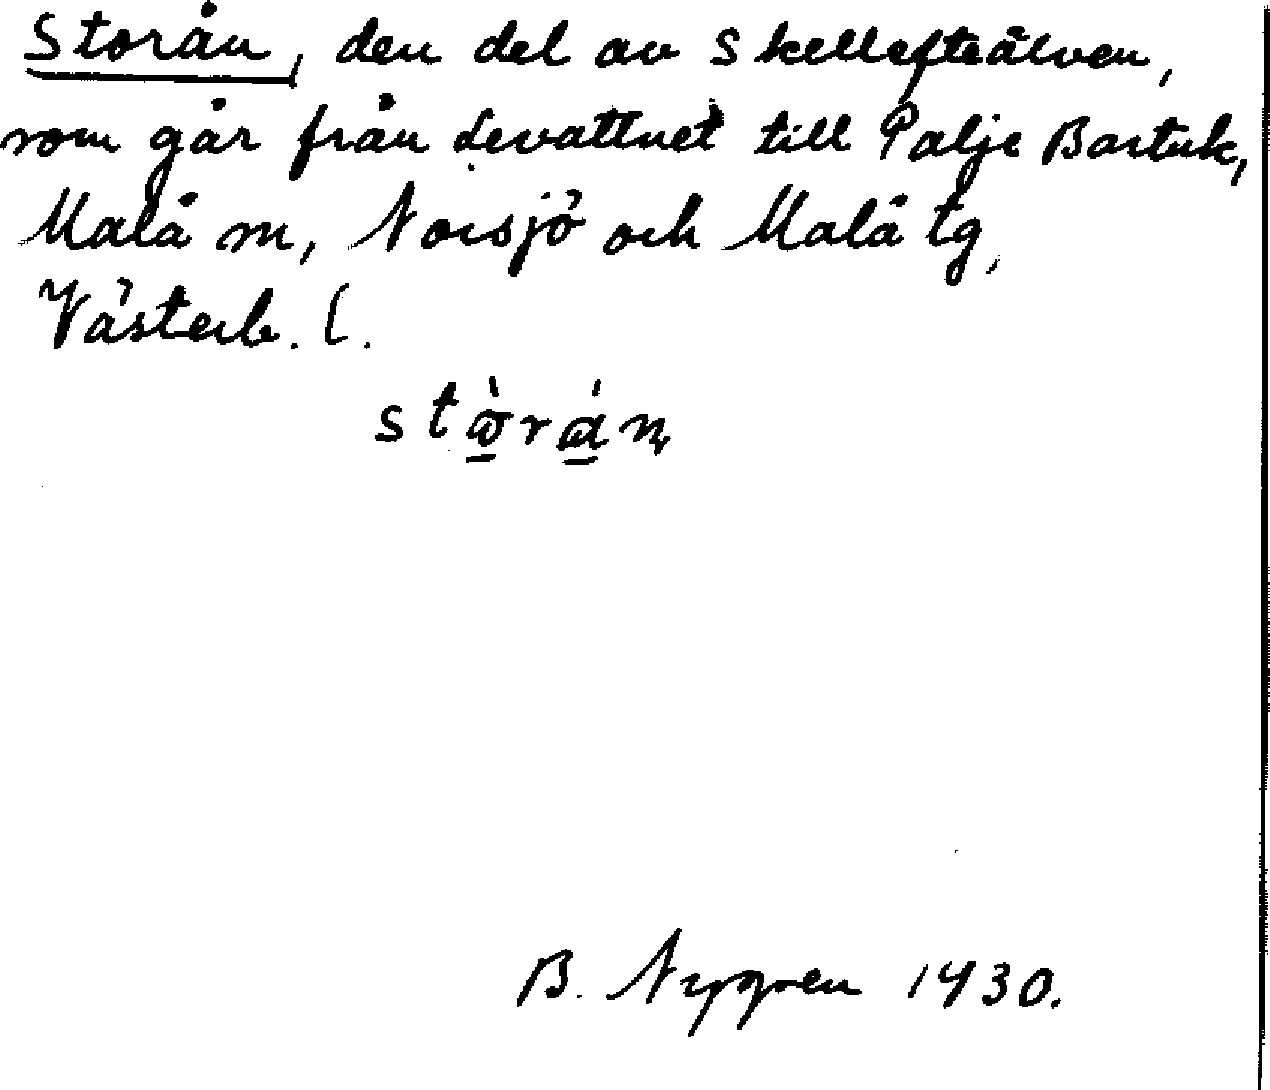 Storån, den del av Skellefteälven,
som går från Levattnet till Palje Bastuk,
Malå sn, Norsjö och Malå tg,
Västerb. l.
B. Nygren 1930.